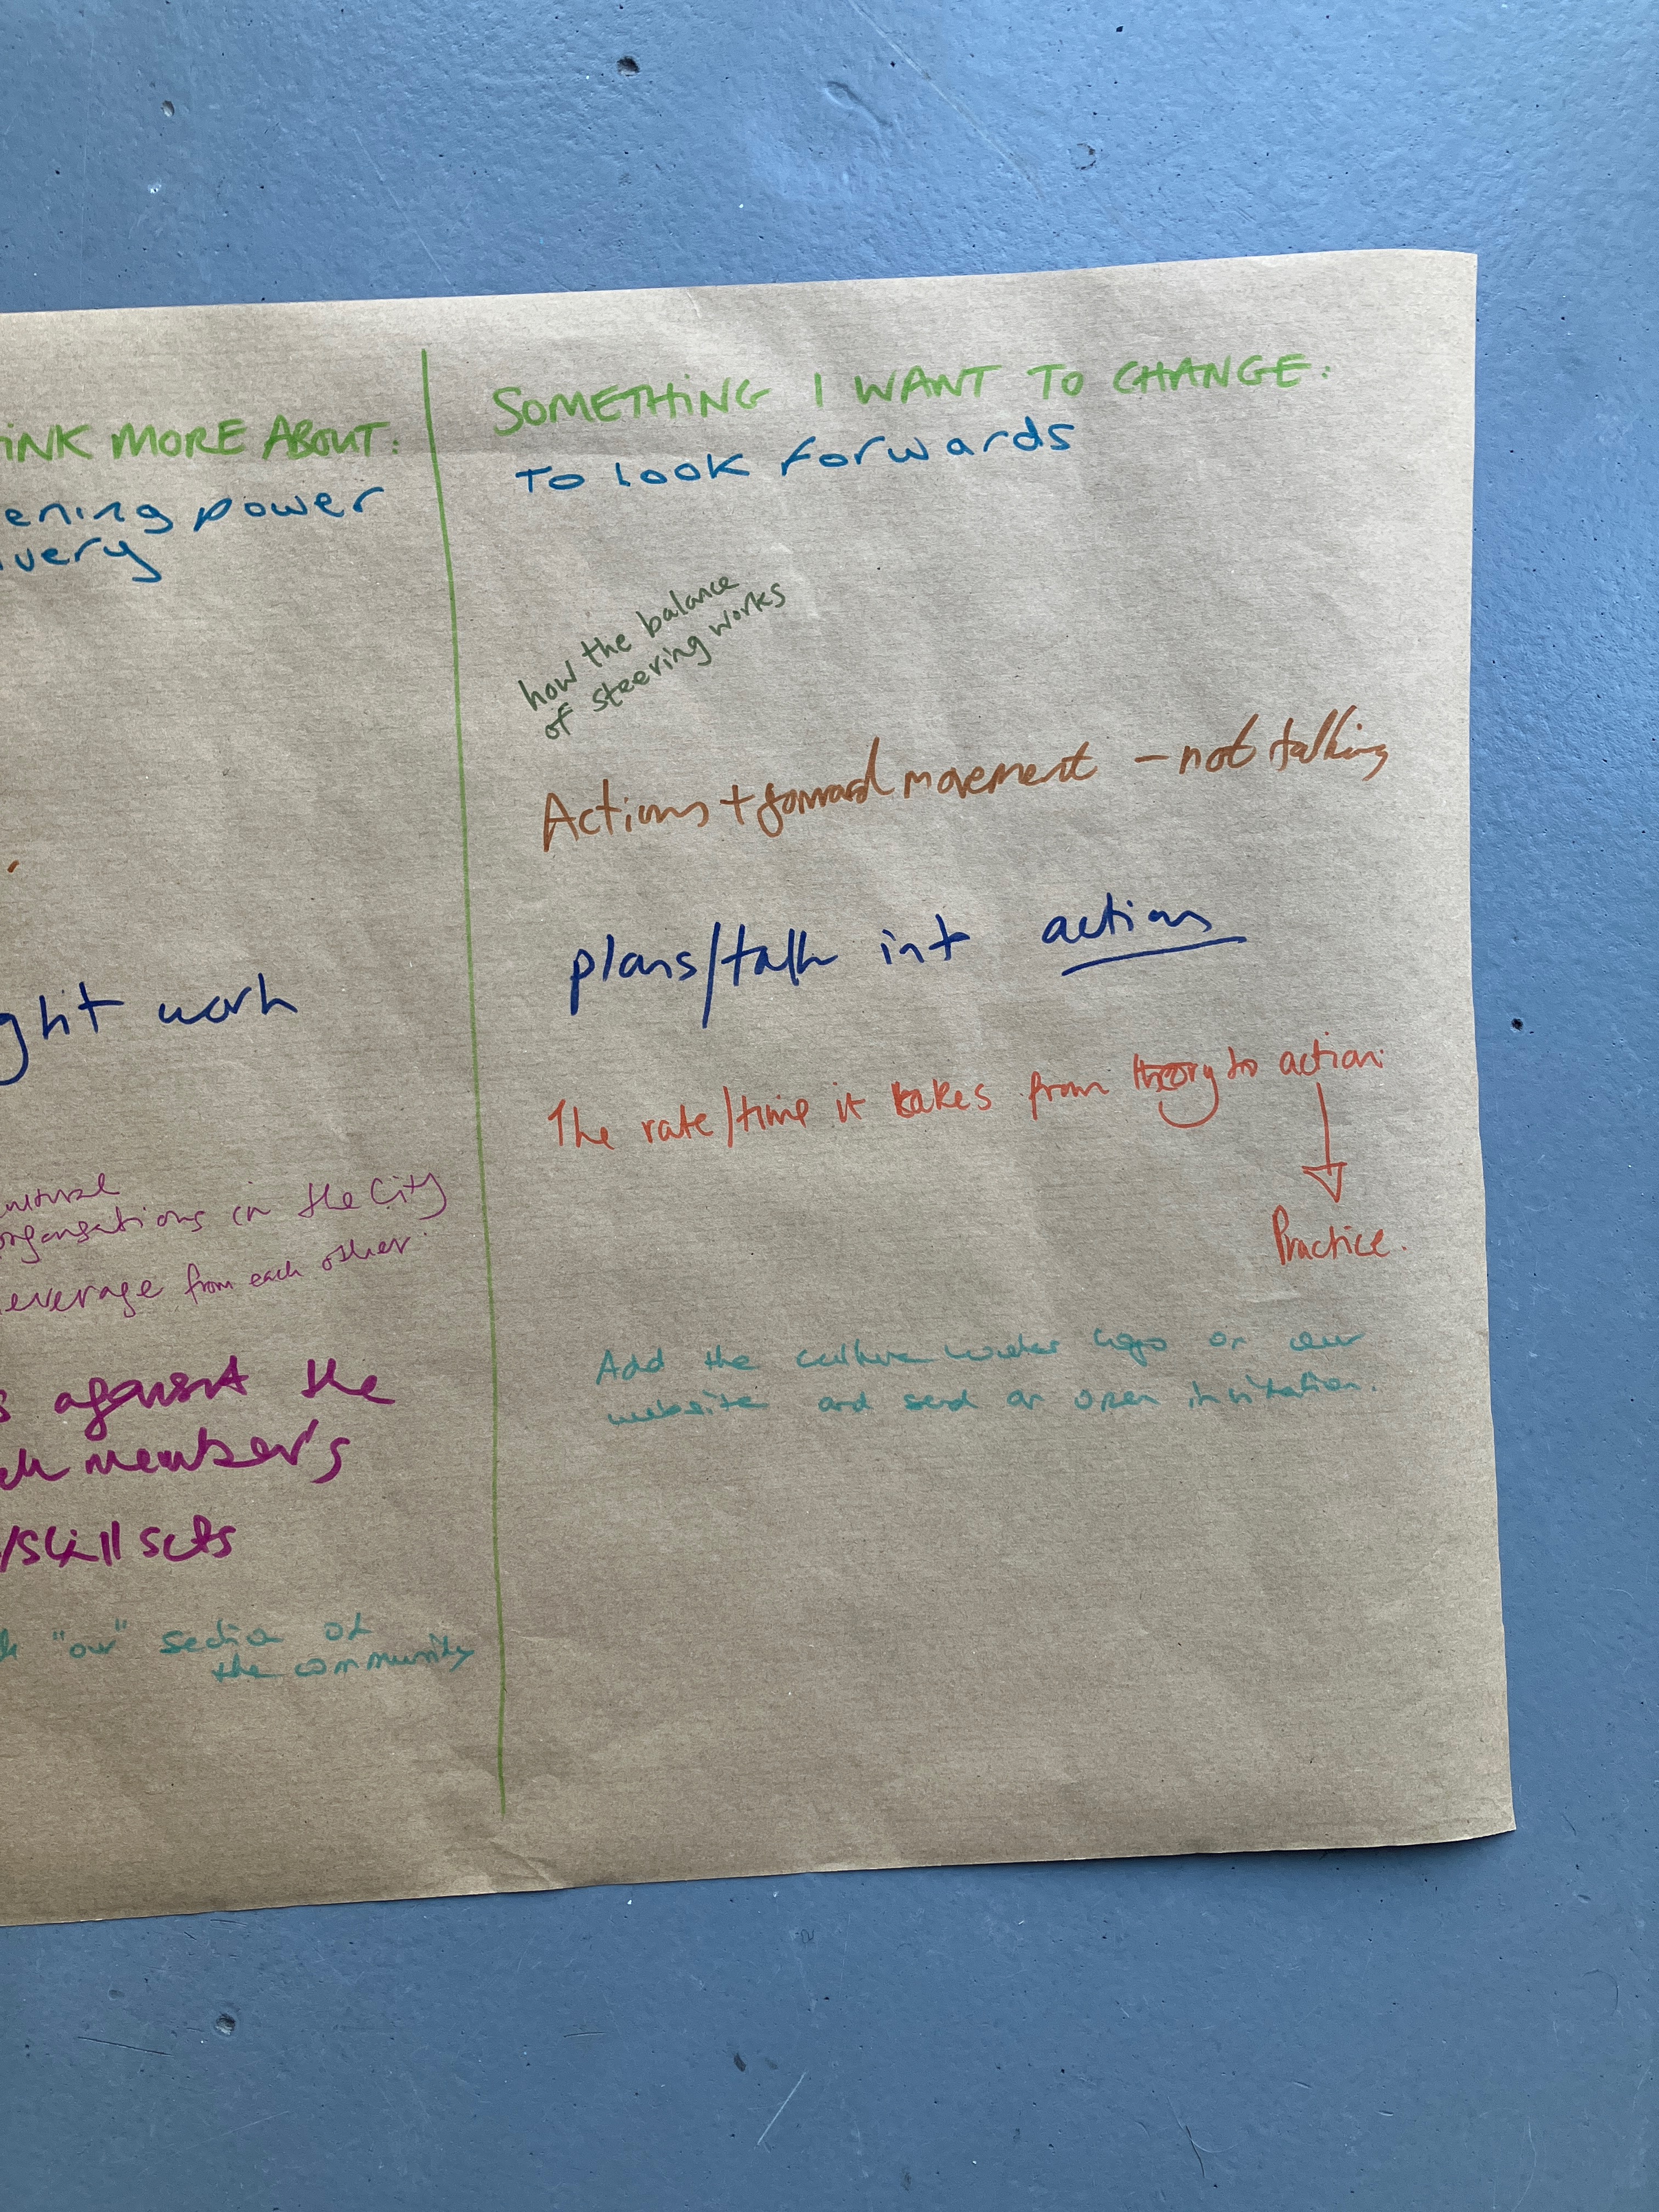 INK MORE ABOUT:
ening power
ivery
ght work
organisations in the City
everage from each other.
s against the
member's
/skill sets
"our" section of
the community
SOMETHING I WANT TO CHANGE:
To look forwards
how the balance
of steering works
Actions + forward movement - not talking
plans/talk into action
The rate/time it takes from theory to action.
Practice.
Add the culture logo on our
website and send an open invitation.